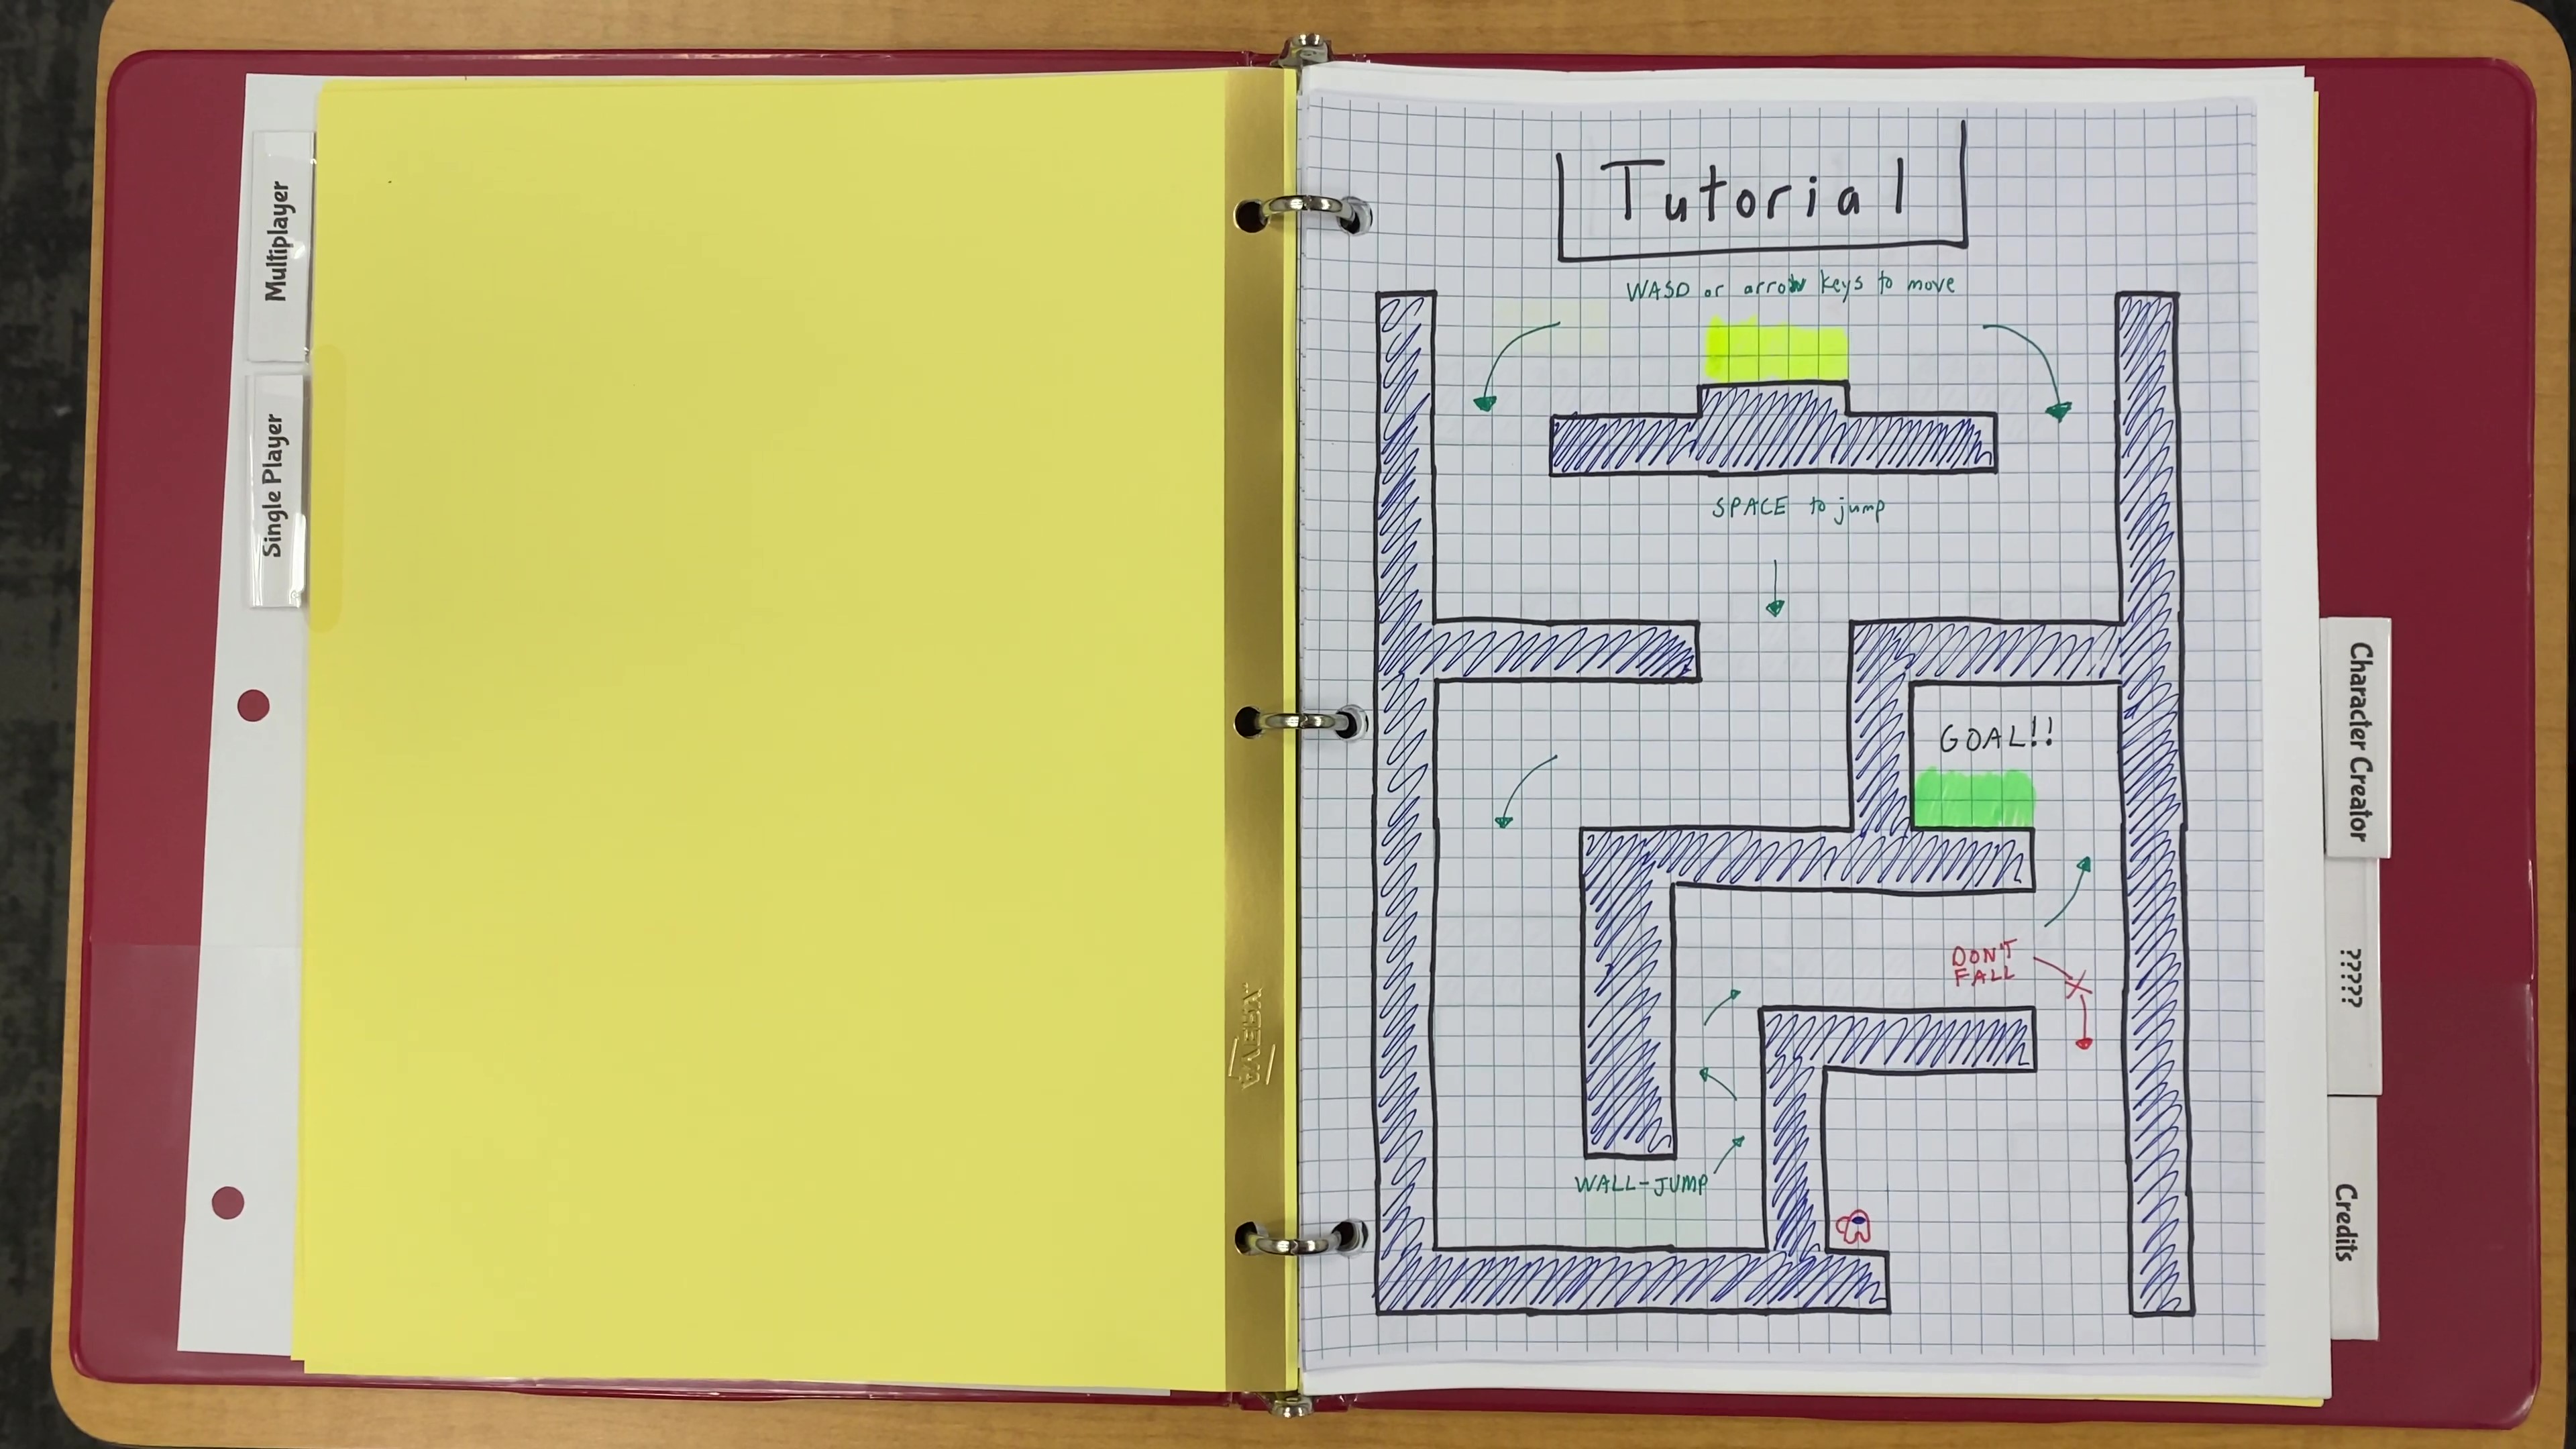 Multiplayer
Single Player
Tutorial
WASD or arrow keys to move
SPACE to jump
GOAL!!
DON'T
FALL
WALL-JUMP
Character Creator
?????
Credits
AVERY